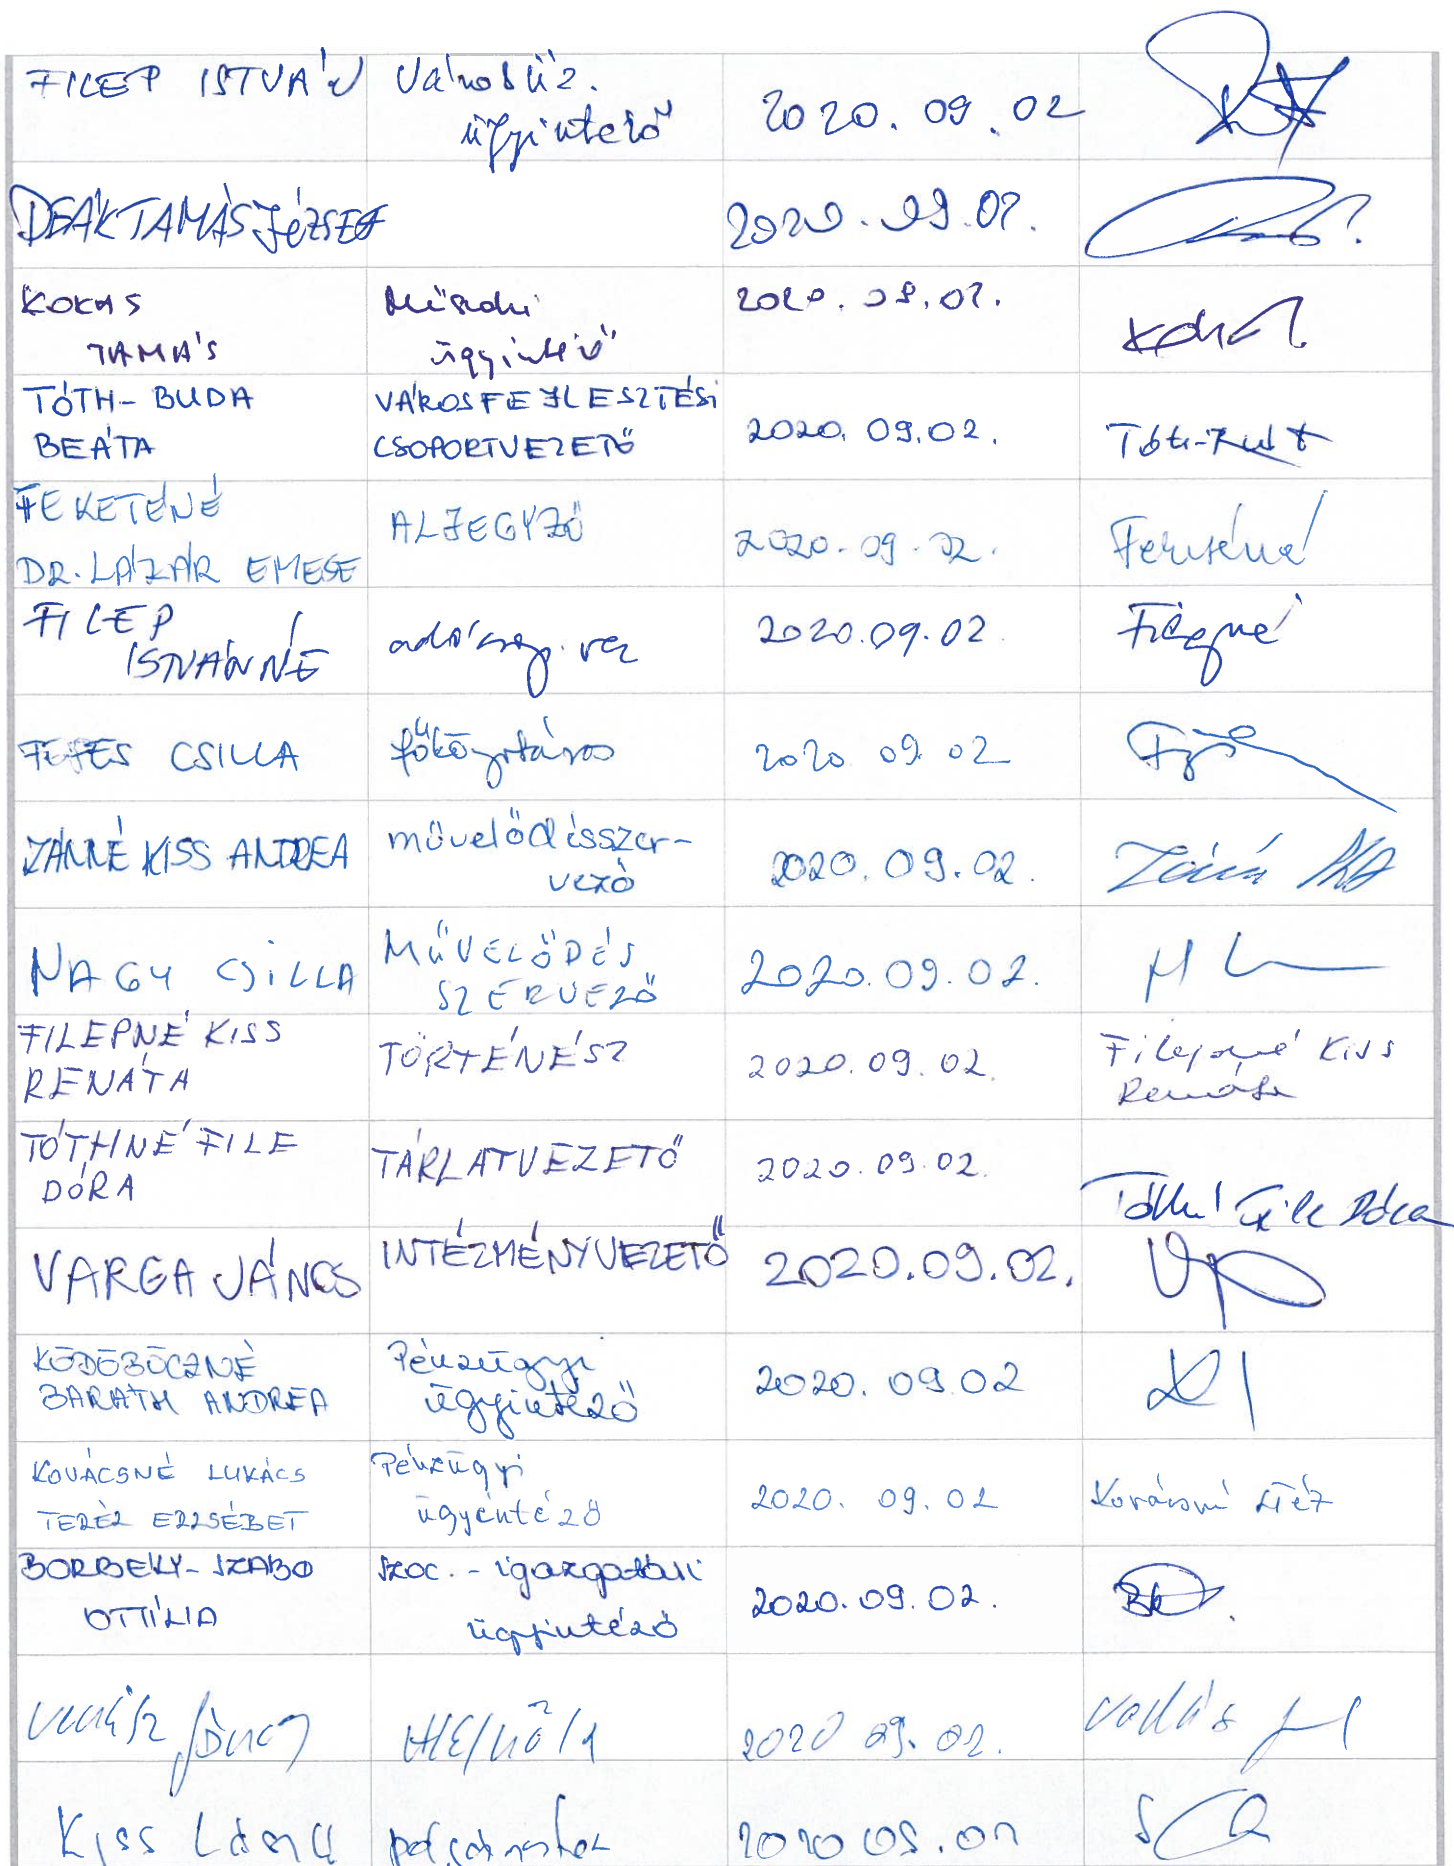 FILEP ISTVÁN
Városüz.
ügyintéző
2020. 09. 02
DEÁK TAMÁS József
2020. 09. 02.
KOKAS
TAMÁS
Műszaki
ügyintéző
2020. 09. 02.
TÓTH-BUDA
BEÁTA
VÁROSFEJLESZTÉSI
CSOPORTVEZETŐ
2020. 09. 02.
FEKETÉNÉ
DR. LÁZÁR EMESE
ALJEGYZŐ
2020. 09. 02.
FILEP
ISTVÁNNÉ
adócsop. vez
2020. 09. 02.
Filepné
FEJES CSILLA
főkönyvtáros
2020 09. 02
ZÁNNÉ KISS ANDREA
művelődésszer-
vező
2020. 09. 02.
NAGY CSILLA
MŰVELŐDÉS
SZERVEZŐ
2020. 09. 02.
FILEPNÉ KISS
RENÁTA
TÖRTÉNÉSZ
2020. 09. 02.
Filepné Kiss
Renáta
TÓTHNÉ FILE
DÓRA
TÁRLATVEZETŐ
2020. 09. 02.
Tóthné File Dóra
VARGA JÁNOS
INTÉZMÉNYVEZETŐ
2020. 09. 02.
KÖDÖBÖCZNÉ
BARÁTH ANDREA
Pénzügyi
ügyintéző
2020. 09. 02
KOVÁCSNÉ LUKÁCS
TERÉZ ERZSÉBET
Pénzügyi
ügyintéző
2020. 09. 02
Kovácsné
BORBÉLY-SZABÓ
OTTÍLIA
szoc. - igazgatási
ügyintéző
2020. 09. 02.
János
2020 09. 02.
Kiss
polgármester